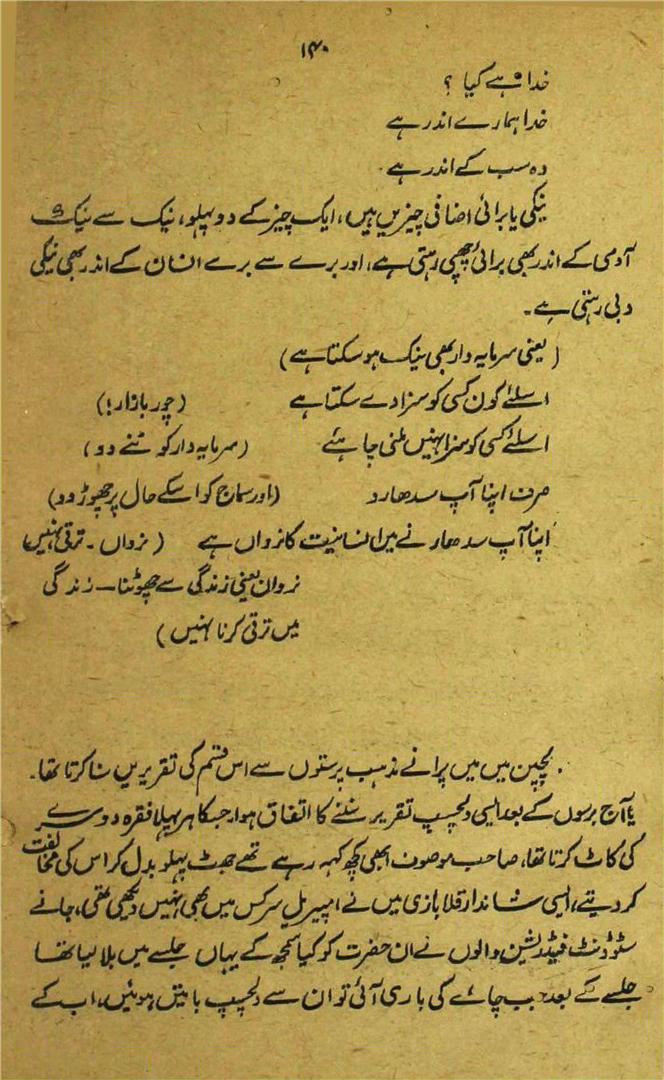 ۱۴۰
خدا ہے کیا ؟
خدا ہمارے اندر ہے
وہ سب کے اندر ہے۔
نیکی یا برائی اضافی چیزیں ہیں، ایک چیز کے دو پہلو، نیک سے نیک
آدمی کے اندر بھی برائی چھپی رہتی ہے، اور برے سے برے انسان کے اندر بھی نیکی
دبی رہتی ہے۔
(یعنی سرمایہ دار بھی نیک ہو سکتا ہے)
اسلئے کون کسی کو سزا دے سکتا ہے (چور بازار!)
اسلئے کسی کو سزا نہیں ملنی چاہئے (سرمایہ دار کو نے دو)
صرف اپنا آپ سدھارو (اور سماج کو اسکے حال پر چھوڑ دو)
اپنا آپ سدھارنے میں انسانیت کا نرواں ہے (نرواں۔ ترقی نہیں
نروان یعنی زندگی سے چھوٹنا — زندگی
میں ترقی کرنا نہیں)
بچپن میں میں پرانے مذہب پرستوں سے اس قسم کی تقریریں سنا کرتا تھا۔
یا آج برسوں کے بعد ایسی دلچسپ تقریر سننے کا اتفاق ہوا، جسکا ہر پہلا فقرہ دوسرے
کی کاٹ کرتا تھا، صاحب موصوف ابھی کچھ کہہ رہے تھے جھٹ پہلو بدل کر اس کی مخالفت
کر دیتے، ایسی شاندار قلابازی میں نے امپیریل سرکس میں بھی نہیں دیکھی تھی، جانے
سٹوڈنٹ فیڈریشن والوں نے ان حضرت کو کیا سمجھ کے یہاں جلسے میں بلا لیا تھا
جلسے کے بعد جب چائے کی باری آئی تو ان سے دلچسپ باتیں ہوئیں، اب کے